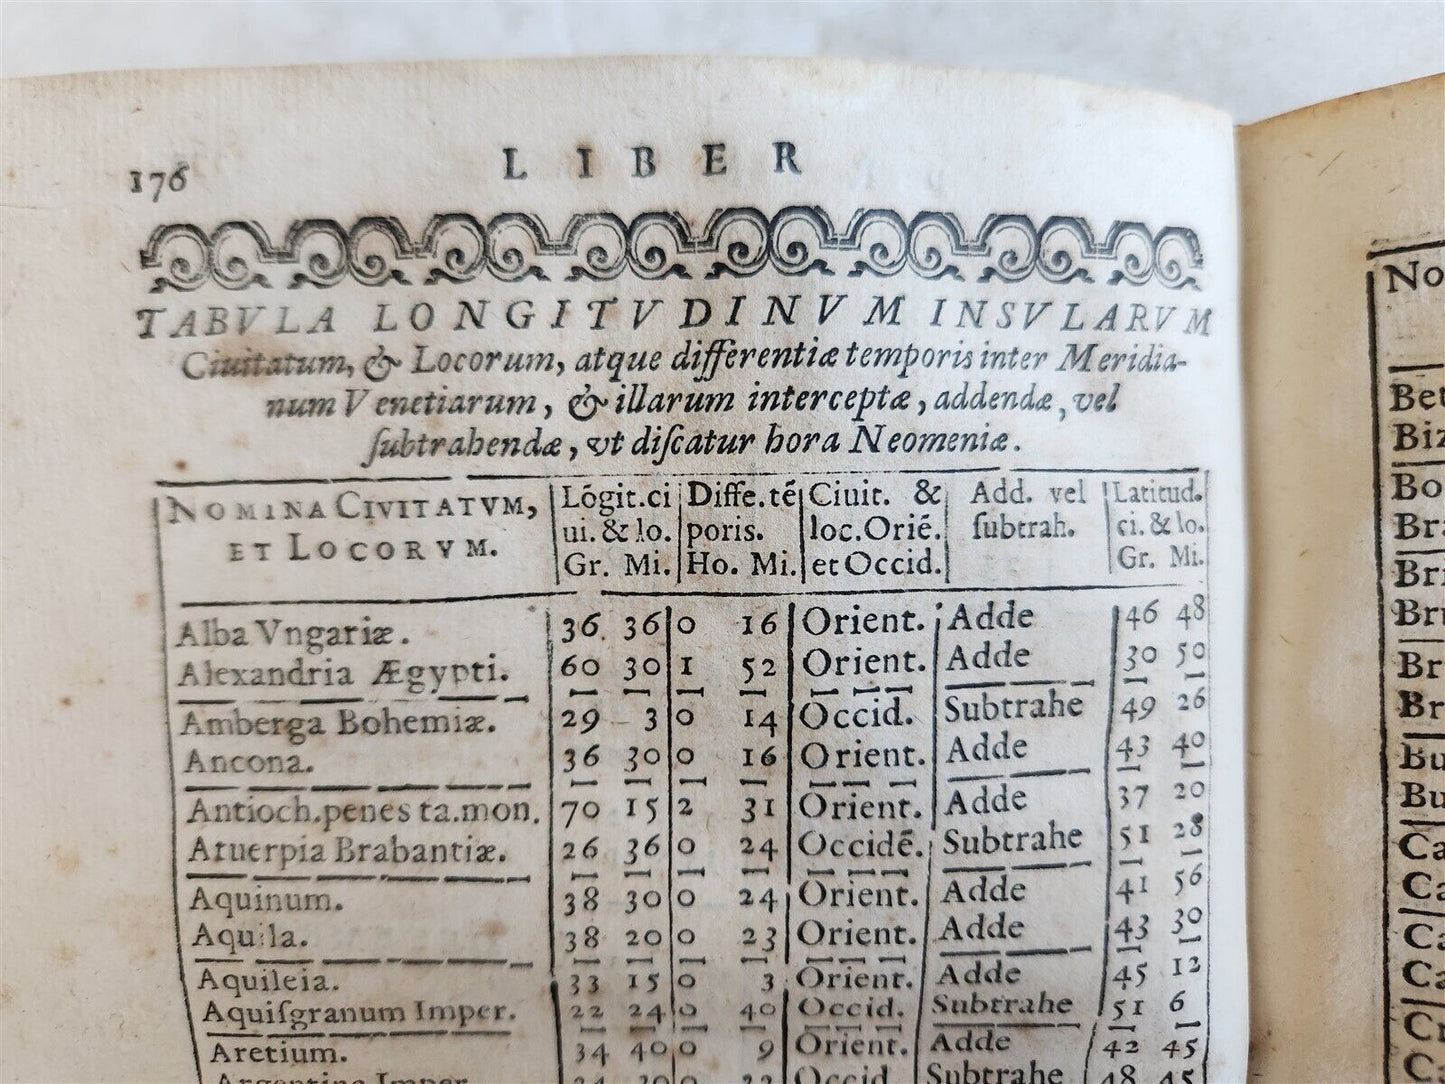 176
LIBER
TABVLA LONGITVDINVM INSVLARVM
Ciuitatum, & Locorum, atque differentiæ temporis inter Meridia-
num Venetiarum, & illarum interceptæ, addendæ, vel
ſubtrahendæ, vt diſcatur hora Neomeniæ.
NOMINA CIVITATVM, Lōgit.ci Diffe.tē Ciuit. & Add. vel Latitud.
ET LOCORVM. ui. & lo. poris. loc.Oriē. ſubtrah. ci. & lo.
Gr. Mi. Ho. Mi. et Occid. Gr. Mi.
Alba Vngariæ. 36 36 0 16 Orient. Adde 46 48
Alexandria Ægypti. 60 30 1 52 Orient. Adde 30 50
Amberga Bohemiæ. 29 3 0 14 Occid. Subtrahe 49 26
Ancona. 36 30 0 16 Orient. Adde 43 40
Antioch.penes ta.mon. 70 15 2 31 Orient. Adde 37 20
Atuerpia Brabantiæ. 26 36 0 24 Occidē. Subtrahe 51 28
Aquinum. 38 30 0 24 Orient. Adde 41 56
Aquila. 38 20 0 23 Orient. Adde 43 30
Aquileia. 33 15 0 3 Orient. Adde 45 12
Aquiſgranum Imper. 22 24 0 40 Occid. Subtrahe 51 6
Aretium. 34 40 0 9 Orient. Adde 42 45
Imper. Occid. Subtrahe 48 45
No
Bet
Biz
Bo
Bra
Bri
Bru
Br
Br
Bu
Bu
Ca
Ca
Ca
Ca